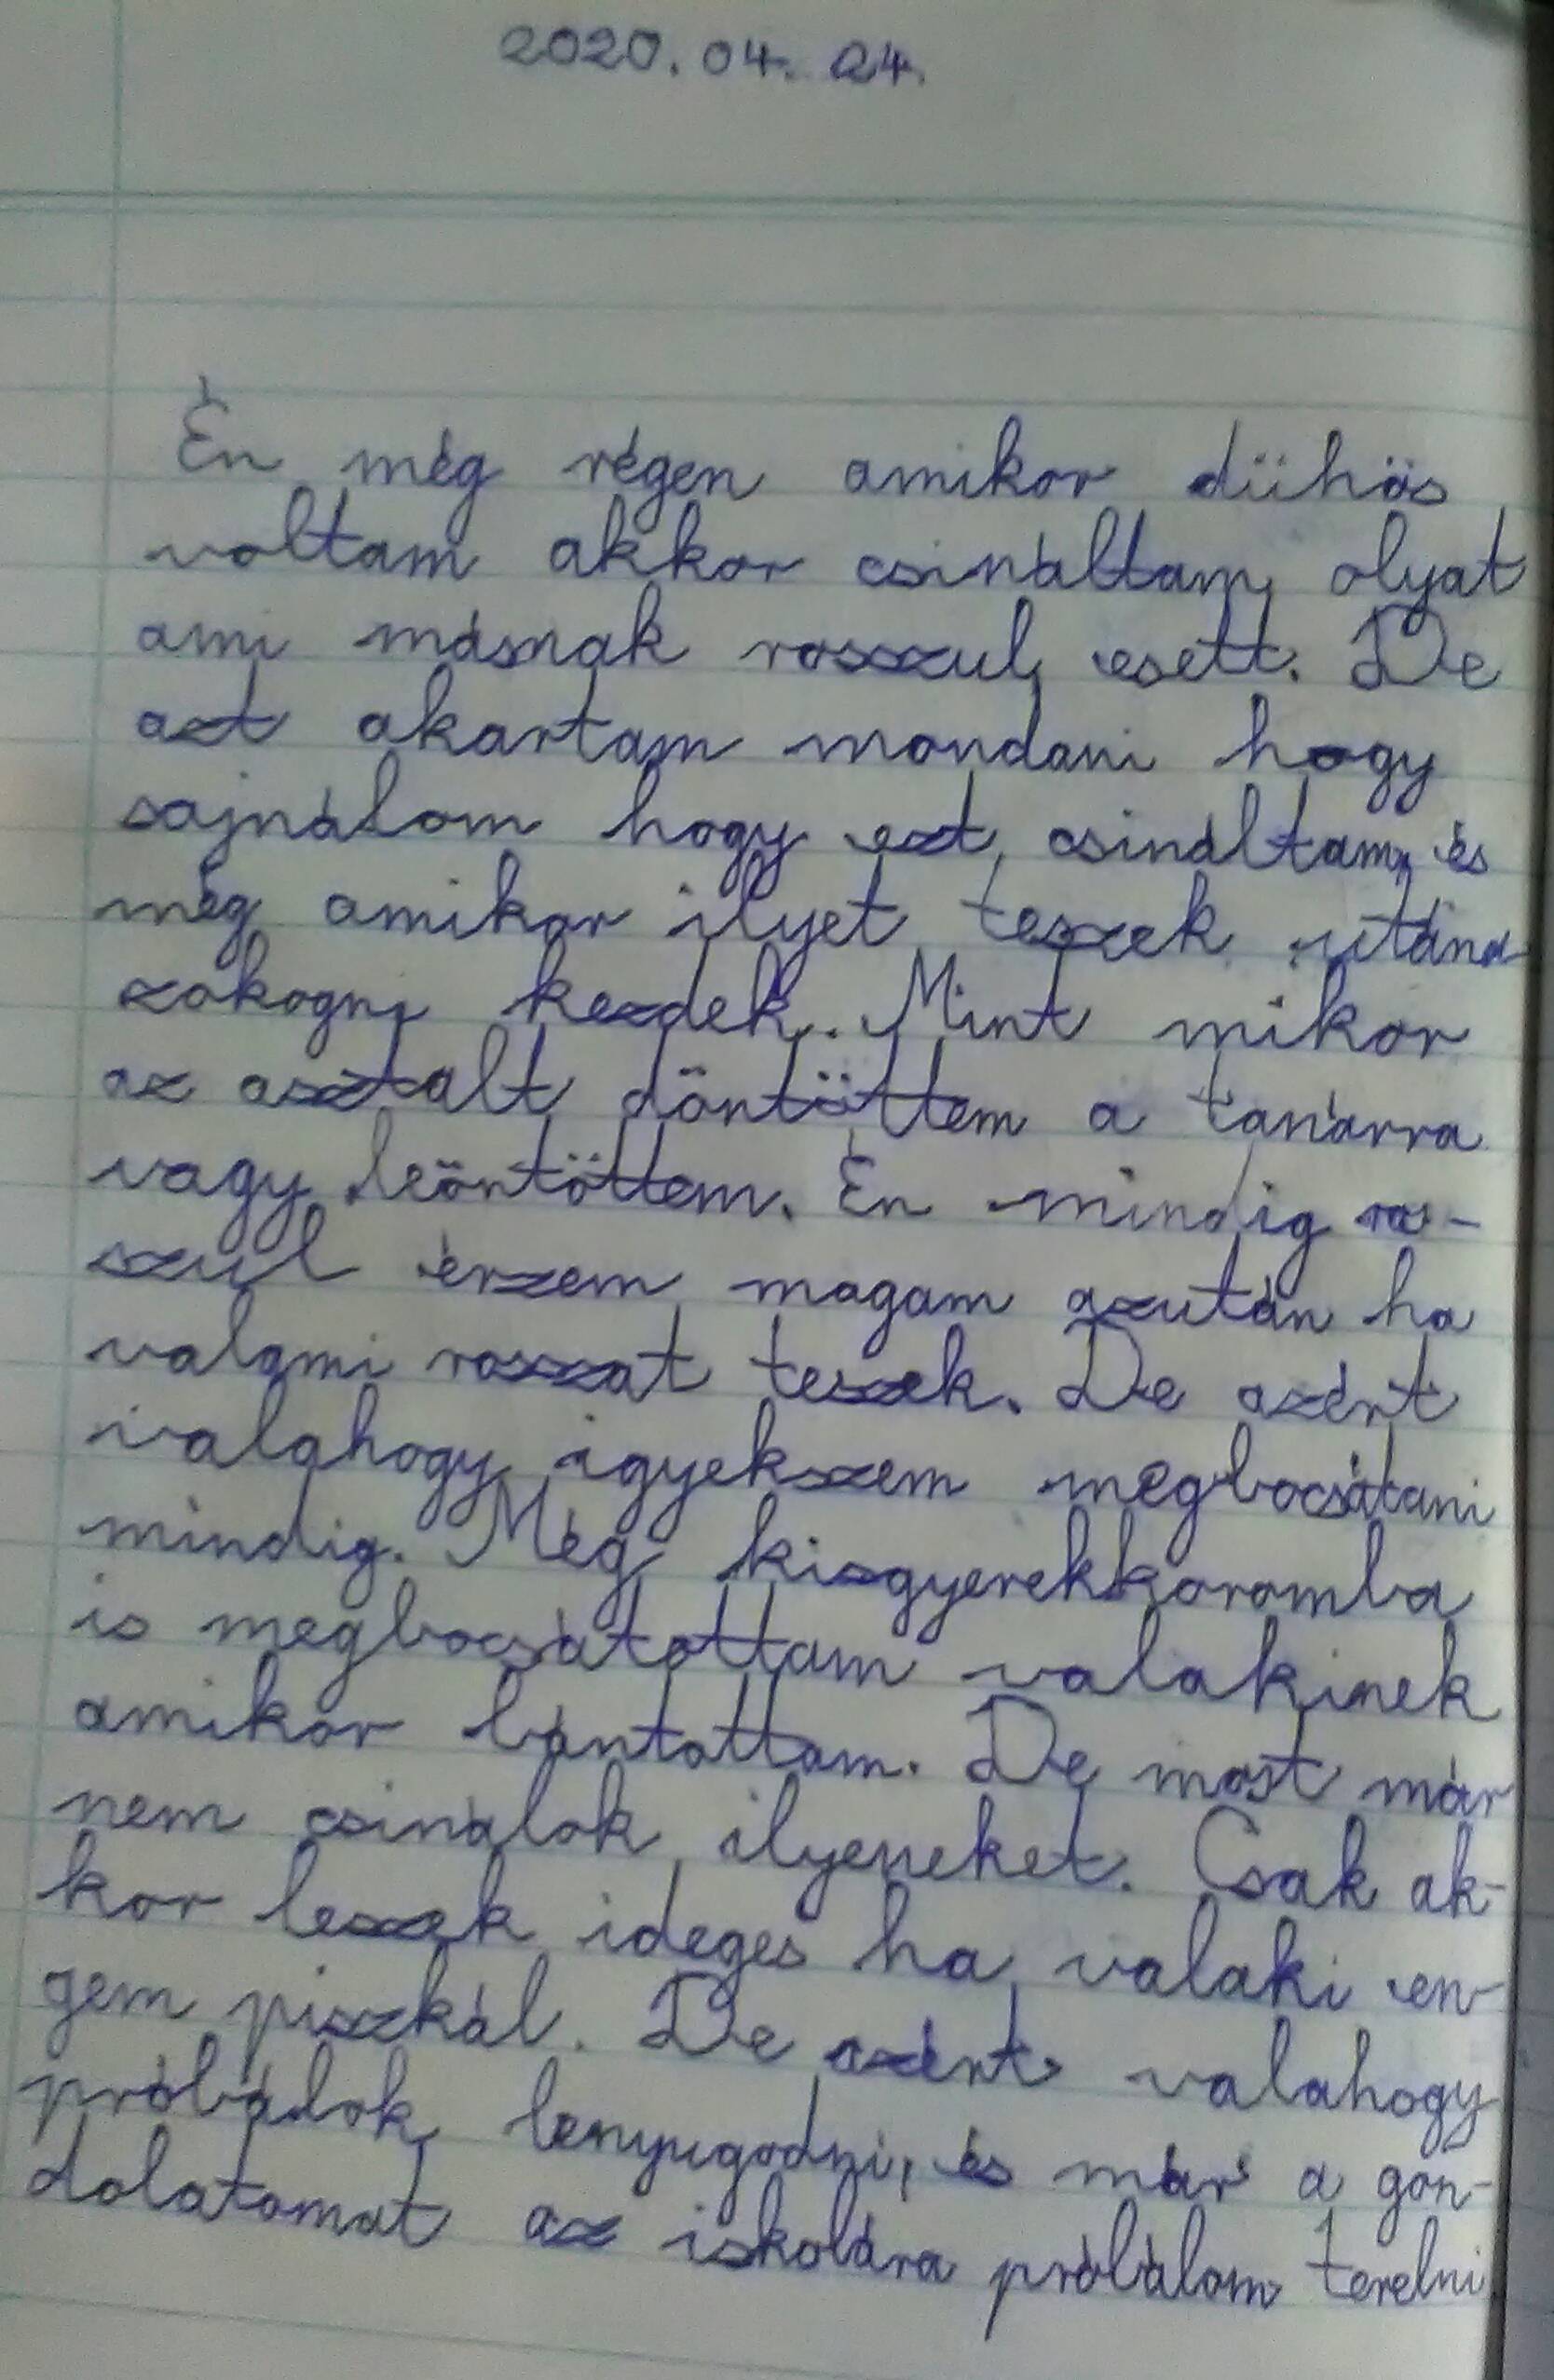 2020. 04. 24.
Én még régen amikor dühös
voltam akkor csináltam olyat
ami másnak rosszul esett. De
azt akartam mondani hogy
sajnálom hogy ezt csináltam, és
még amikor ilyet teszek utána
zokogni kezdek. Mint mikor
az asztalt döntöttem a tanárra
vagy leöntöttem. Én mindig ros-
szul érzem magam azután ha
valami rosszat teszek. De azért
valahogy igyekszem megbocsátani
mindig. Még kisgyerekkoromba
is megbocsátottam valakinek
amikor bántottam. De most már
nem csinálok ilyeneket. Csak ak-
kor leszek ideges ha valaki en-
gem piszkál. De azért valahogy
próbálok lenyugodni, és már a gon-
dolatomat az iskolára próbálom terelni.